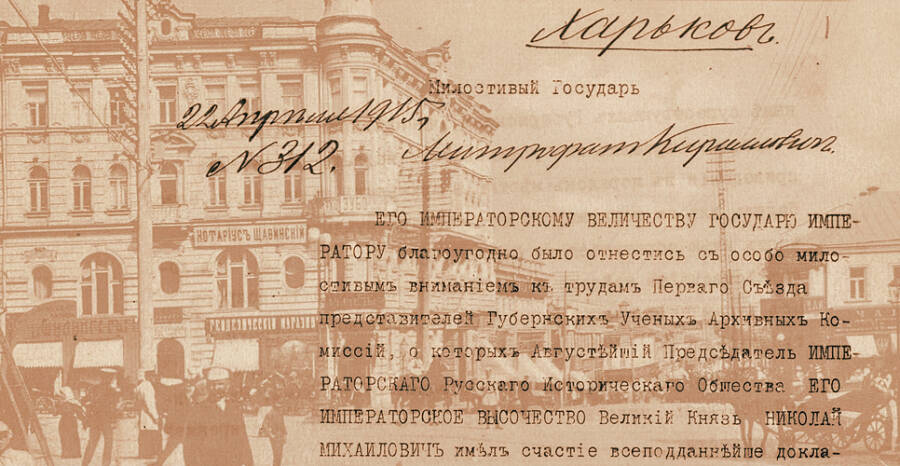 Харьковъ.
Милостивый Государь
22 Апреля 1915 г.
N 312.
Митрофанъ Кирилловичъ.
ЗУБО
НОТАРІУСЪ ЩАВИНСКІЙ
ЕГО ИМПЕРАТОРСКОМУ ВЕЛИЧЕСТВУ ГОСУДАРЮ ИМПЕ-
РАТОРУ благоугодно было отнестись съ особо мило-
стивымъ вниманіемъ къ трудамъ Перваго Съѣзда
представителей Губернскихъ Ученыхъ Архивныхъ Ко-
миссій, о которыхъ Августѣйшій Предсѣдатель ИМПЕ-
РАТОРСКАГО Русскаго Историческаго Общества ЕГО
ИМПЕРАТОРСКОЕ ВЫСОЧЕСТВО Великій Князь НИКОЛАЙ
МИХАИЛОВИЧЪ имѣлъ счастіе всеподданнѣйше докла-